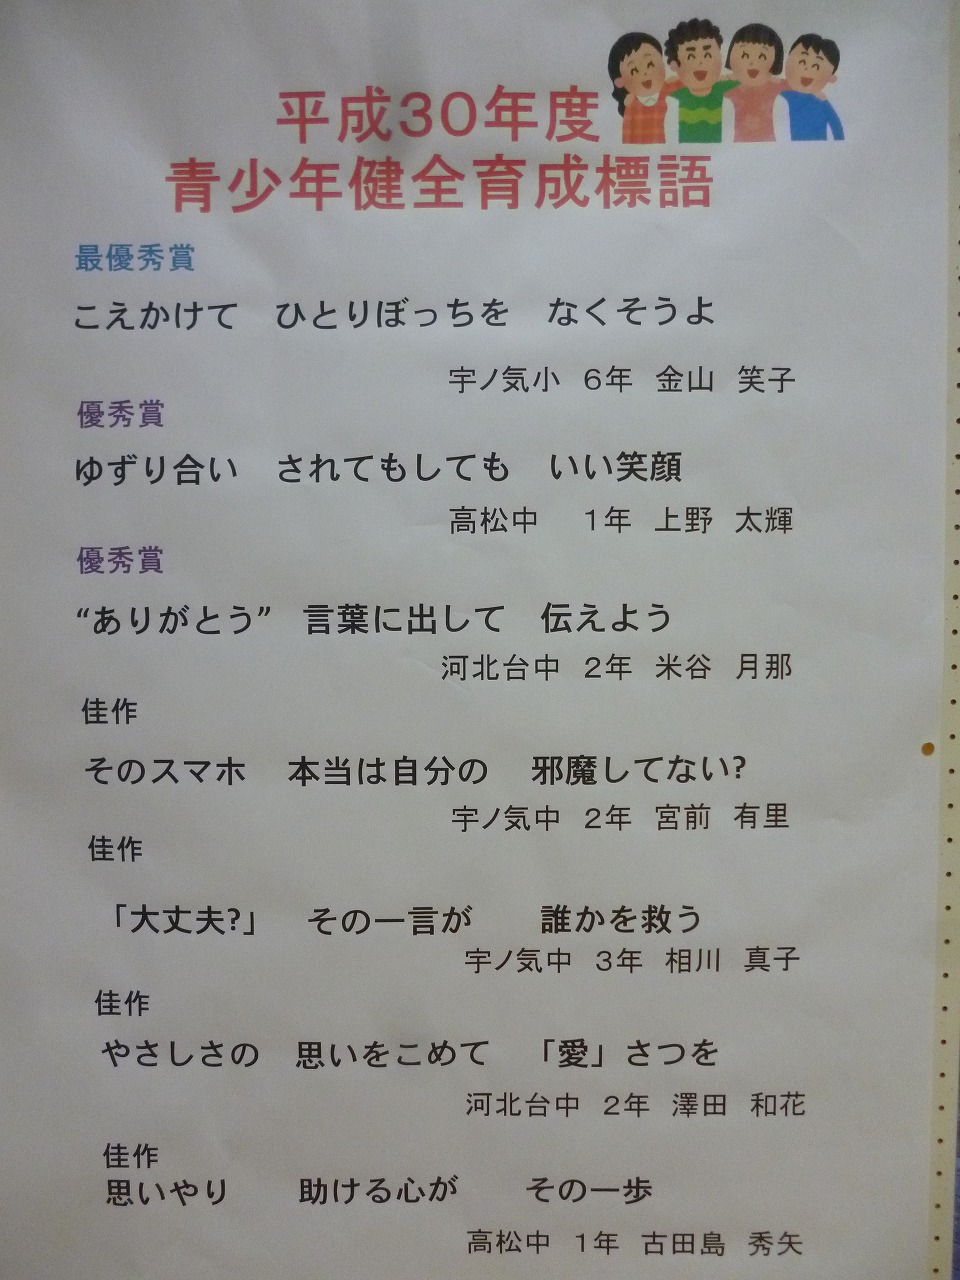 平成30年度
青少年健全育成標語
最優秀賞
こえかけて　ひとりぼっちを　なくそうよ
宇ノ気小　6年　金山　笑子
優秀賞
ゆずり合い　されてもしても　いい笑顔
高松中　1年　上野　太輝
優秀賞
“ありがとう”　言葉に出して　伝えよう
河北台中　2年　米谷　月那
佳作
そのスマホ　本当は自分の　邪魔してない?
宇ノ気中　2年　宮前　有里
佳作
「大丈夫?」　その一言が　誰かを救う
宇ノ気中　3年　相川　真子
佳作
やさしさの　思いをこめて　「愛」さつを
河北台中　2年　澤田　和花
佳作
思いやり　助ける心が　その一歩
高松中　1年　古田島　秀矢